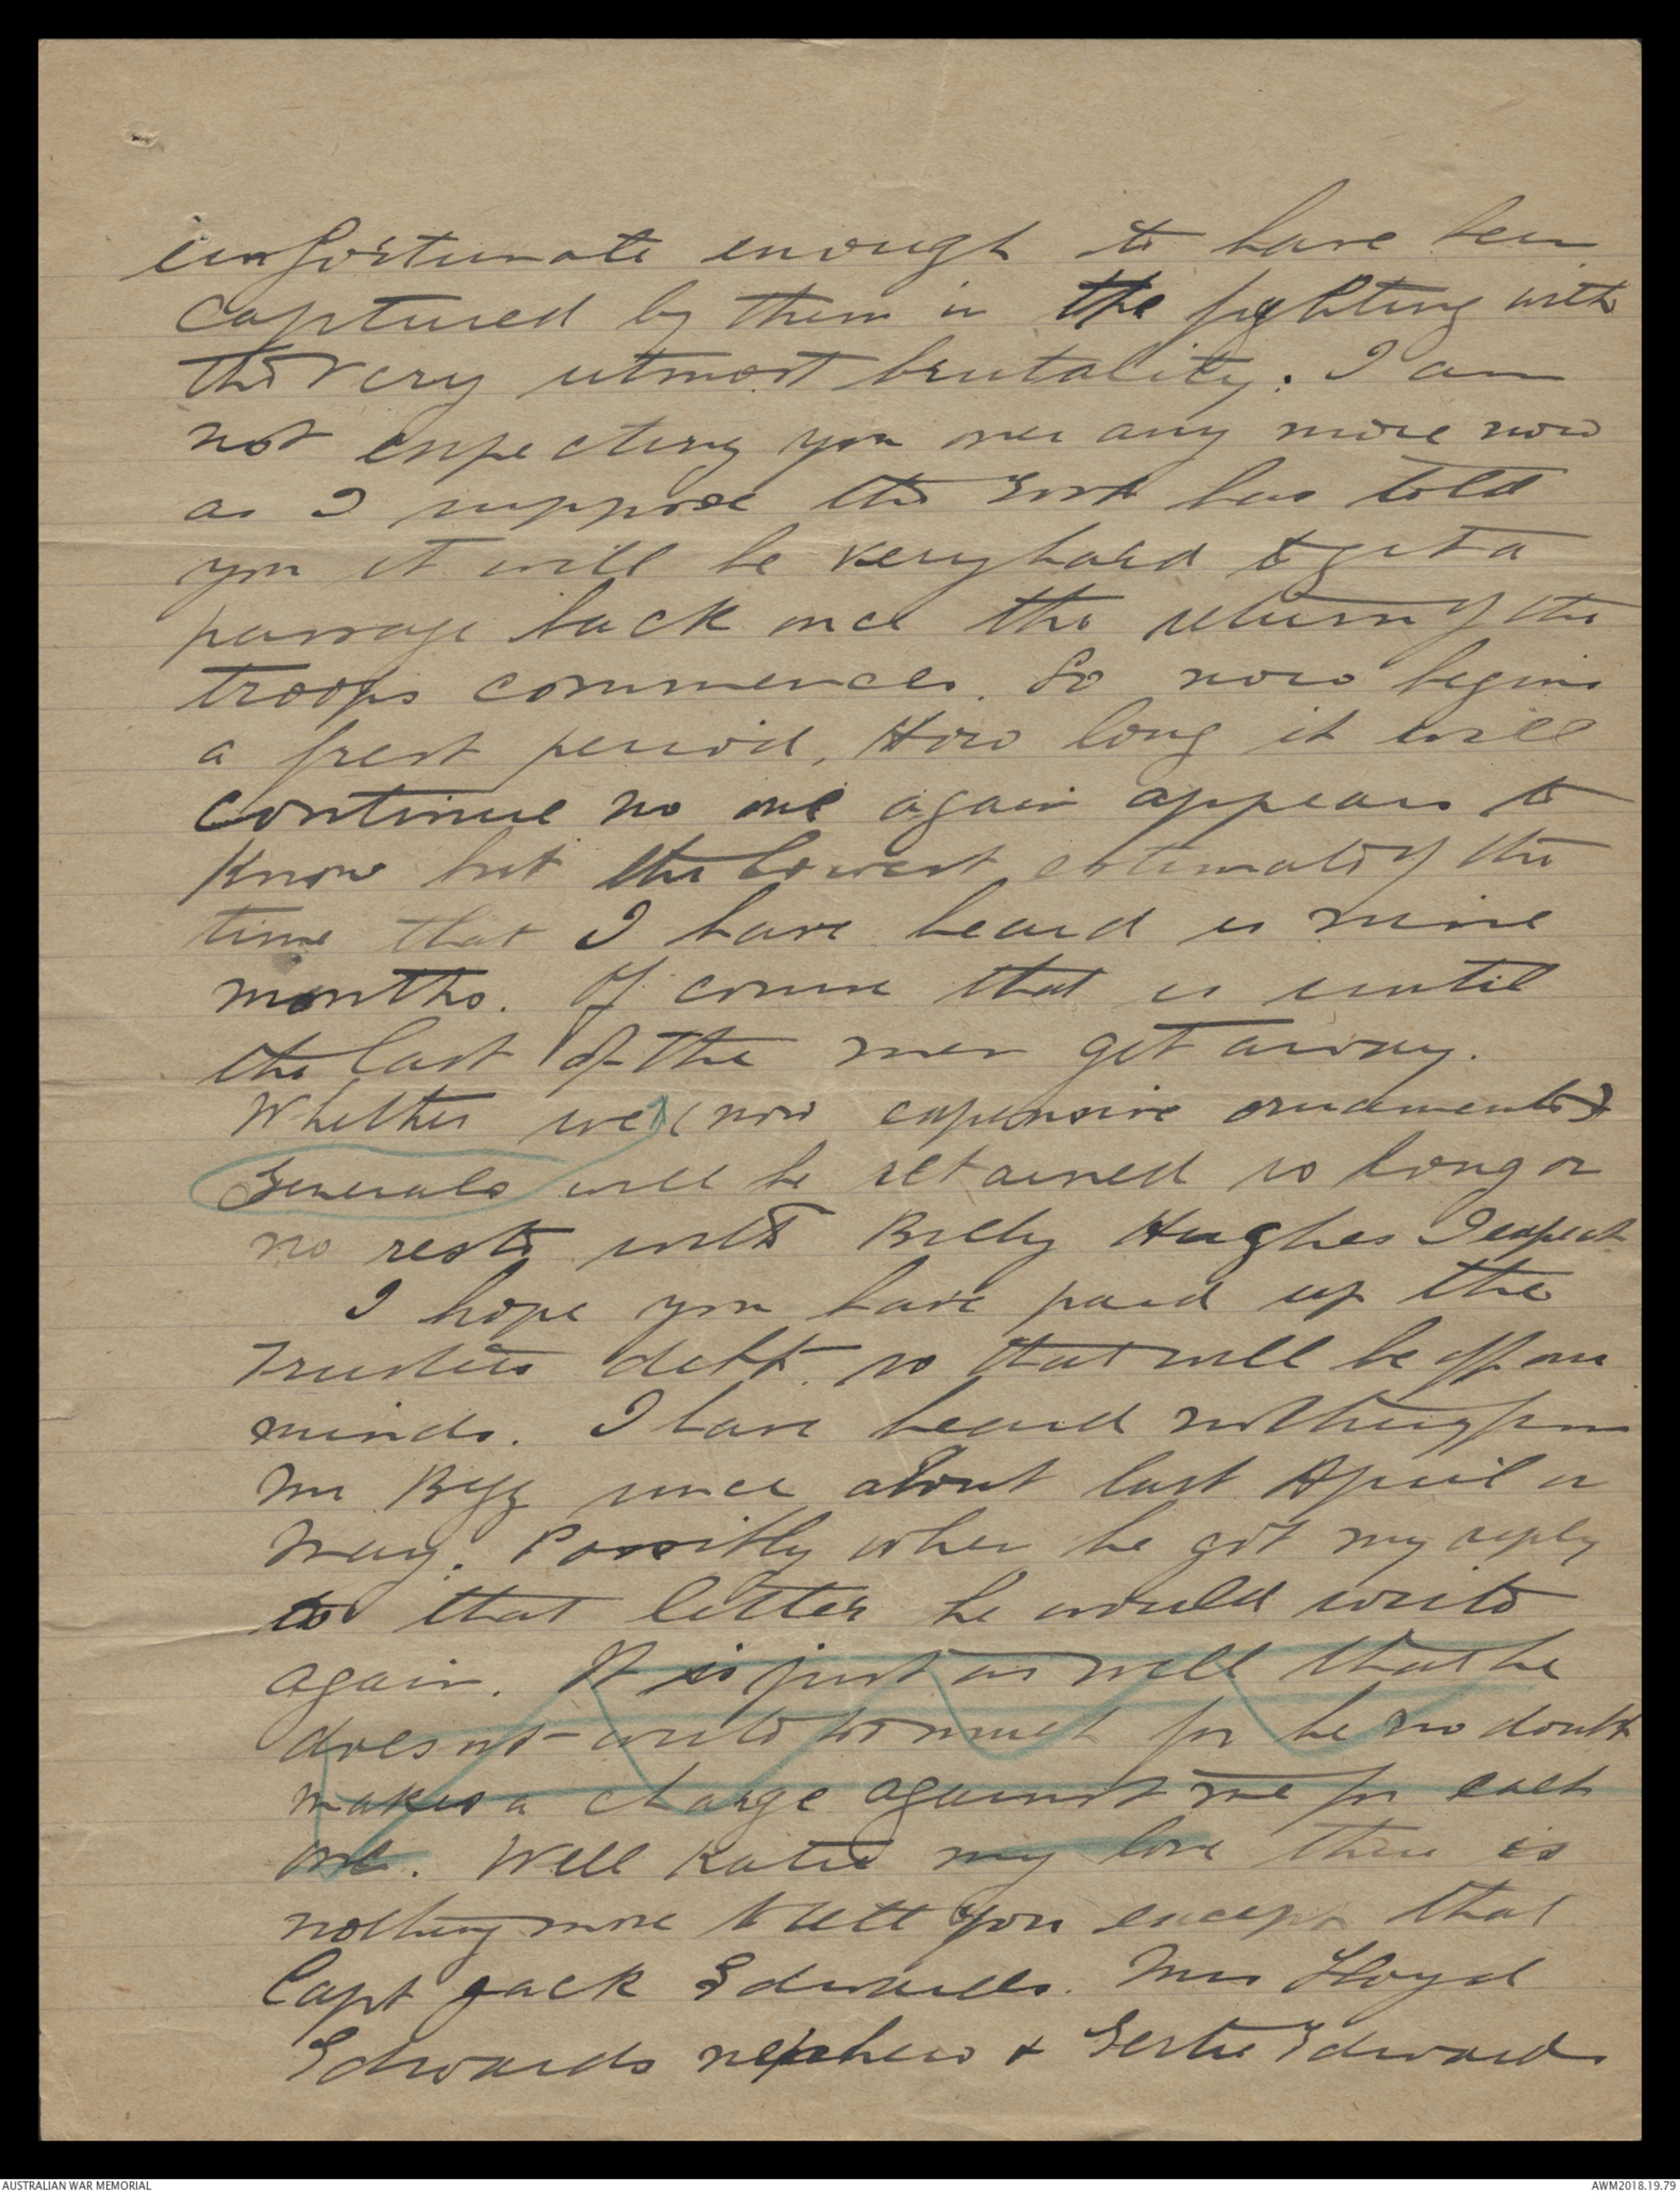 unfortunate enough to have been
captured by them in the fighting with
the very utmost brutality. I am
not expecting you over any more now
as I suppose the Govt has told
you it will be very hard to get a
passage back once the return of the
troops commences. So now begins
a fresh period, How long it will
continue no one again appears to
know but the lowest estimate of the
time that I have heard is nine
months. Of course that is until
the last of the men get away.
Whether we (now expensive ornaments)
Generals will be retained so long or
no rests with Billy Hughes I expect
I hope you have paid up the
Trustees debt so that will be off our
minds. I have heard nothing from
Mr Begg since about last April or
May. Possibly when he got my reply
to that letter he would write
again. It is just as well that he
does not write too much for he no doubt
makes a charge against me for each
one. Well Katie my love there is
nothing more to tell you except that
Capt Jack Edwards. Mrs Lloyd
Edwards nephew & Gertie Edwards
AUSTRALIAN WAR MEMORIAL
AWM2018.19.79